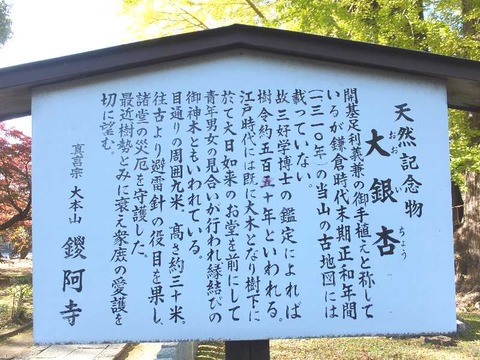 天然記念物
大銀杏
おお い ちょう
開基足利義兼の御手植えと称して
いるが鎌倉時代末期正和年間
(一三一〇年)の当山の古地図には
載っていない。
故三好学博士の鑑定によれば
樹令約五百五十年といわれる。
江戸時代には既に大木となり樹下に
於て大日如来のお堂を前にして
青年男女の見合いが行われ縁結びの
御神木ともいわれている。
目通りの周囲九米、高さ約三十米。
往古より避雷針の役目を果し、
諸堂の災厄を守護した。
最近樹勢とみに衰え衆庶の愛護を
切に望む。
真言宗 大本山 鑁阿寺